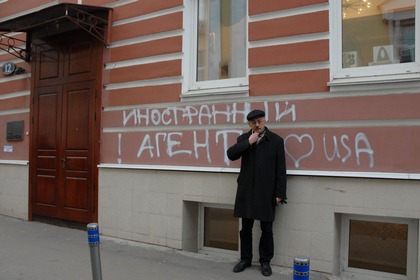 12
ИНОСТРАННЫЙ
! АГЕНТ ♡ USA